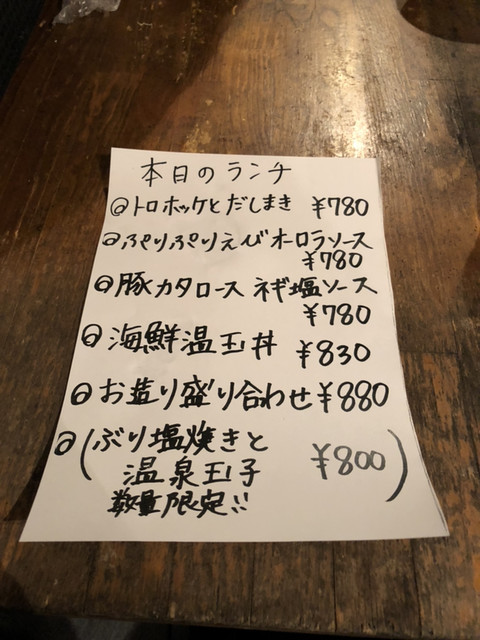 本日のランチ
◎トロホッケとだしまき ¥780
◎ぷりぷりえびオーロラソース
¥780
◎豚カタロース ネギ塩ソース
¥780
◎海鮮温玉丼 ¥830
◎お造り盛り合わせ ¥880
◎(ぶり塩焼きと
温泉玉子 ¥800)
数量限定!!